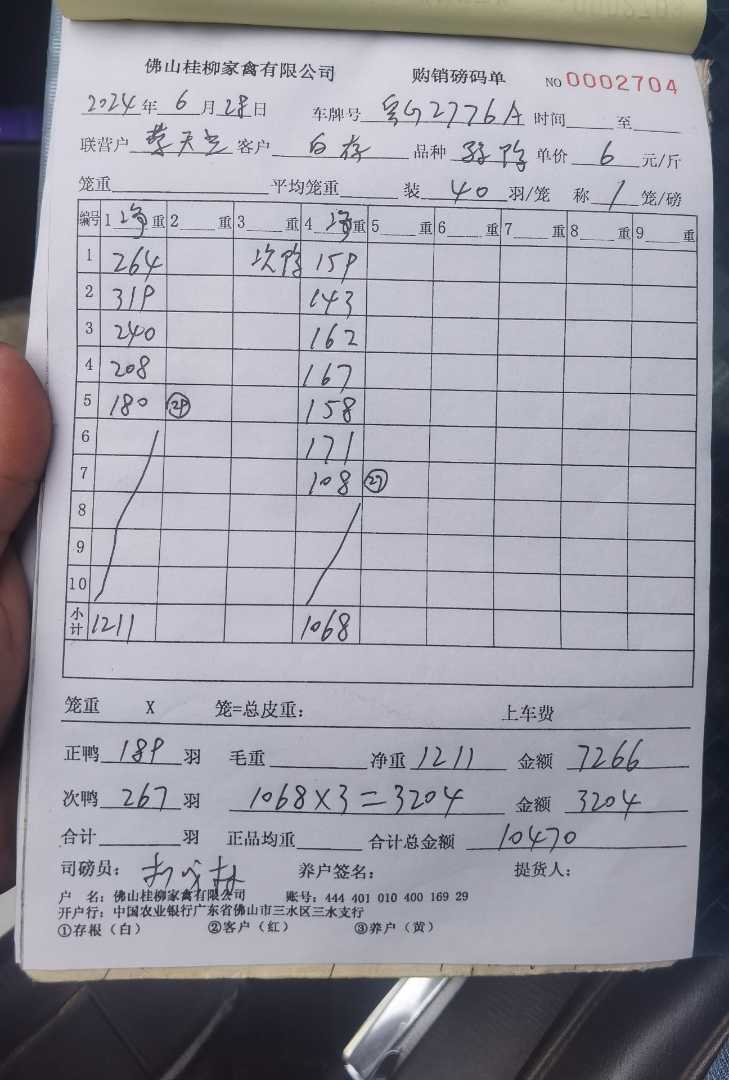 佛山桂柳家禽有限公司 购销磅码单 NO 0002704
2024年 6 月 28 日 车牌号 粤G2776A 时间 至
联营户 客户 白存 品种 单价 6 元/斤
笼重 平均笼重 装 40 羽/笼 称 1 笼/磅
编号 1 净 重 2 重 3 重 4 净 重 5 重 6 重 7 重 8 重 9 重
1 264 次鸭 159
2 319 143
3 240 162
4 208 167
5 180 29 158
6 171
7 108 27
8
9
10
小计 1211 1068
笼重 X 笼=总皮重: 上车费
正鸭 189 羽 毛重 净重 1211 金额 7266
次鸭 267 羽 1068×3=3204 金额 3204
合计 羽 正品均重 合计总金额 10470
司磅员: 养户签名: 提货人:
户 名: 佛山桂柳家禽有限公司 账号: 444 401 010 400 169 29
开户行: 中国农业银行广东省佛山市三水区三水支行
①存根(白) ②客户(红) ③养户(黄)